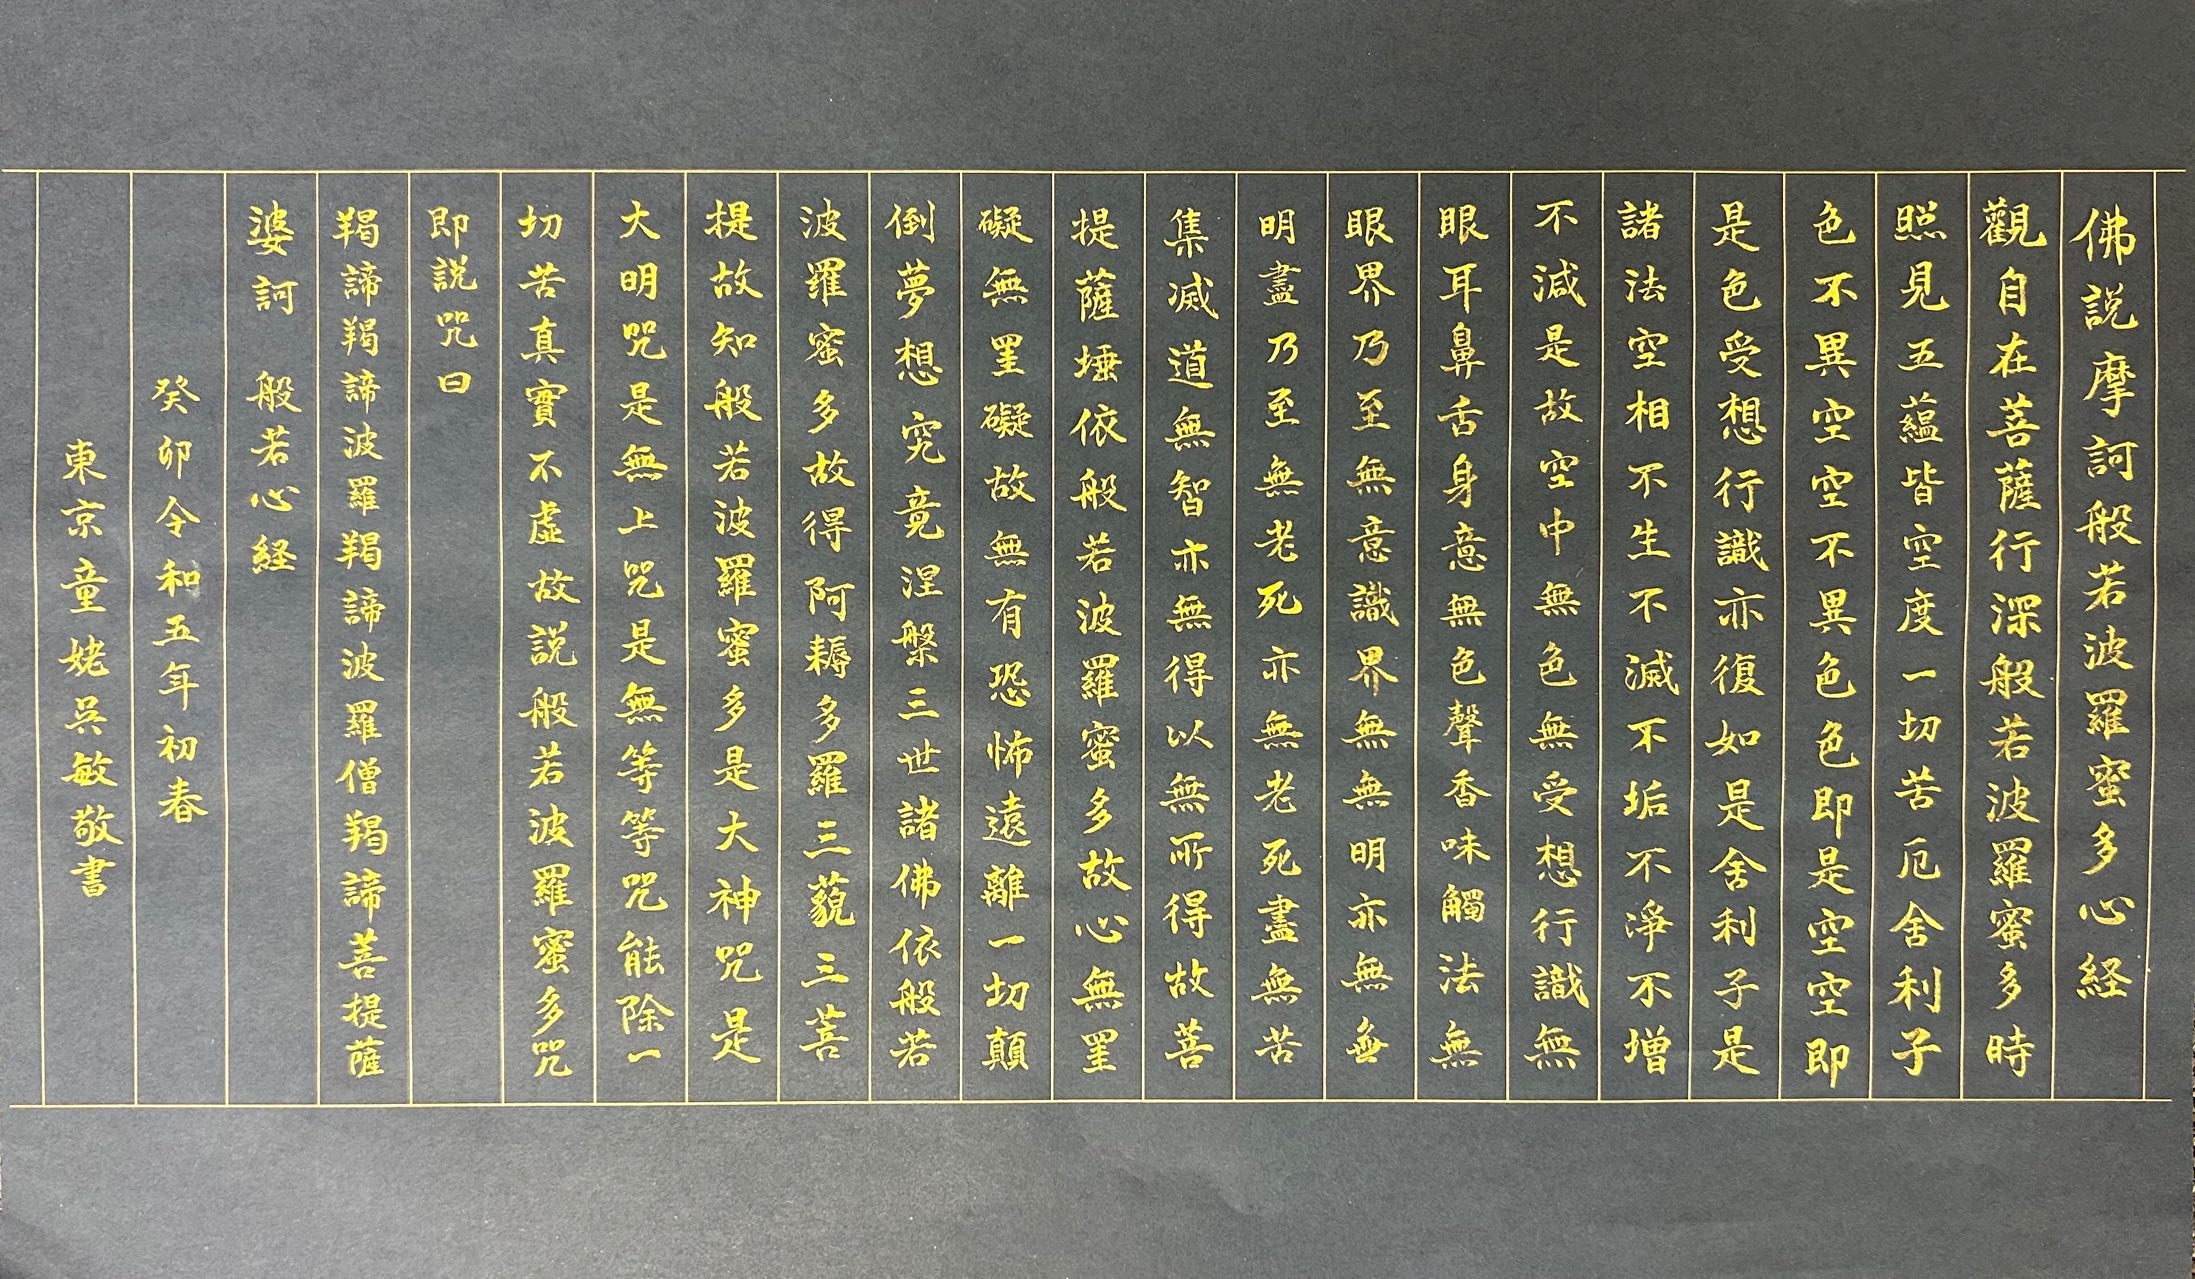 佛説摩訶般若波羅蜜多心経
觀自在菩薩行深般若波羅蜜多時
照見五蘊皆空度一切苦厄舍利子
色不異空空不異色色即是空空即
是色受想行識亦復如是舍利子是
諸法空相不生不滅不垢不淨不增
不減是故空中無色無受想行識無
眼耳鼻舌身意無色聲香味觸法無
眼界乃至無意識界無無明亦無無
明盡乃至無老死亦無老死盡無苦
集滅道無智亦無得以無所得故菩
提薩埵依般若波羅蜜多故心無罣
礙無罣礙故無有恐怖遠離一切顛
倒夢想究竟涅槃三世諸佛依般若
波羅蜜多故得阿耨多羅三藐三菩
提故知般若波羅蜜多是大神咒是
大明咒是無上咒是無等等咒能除一
切苦真實不虛故説般若波羅蜜多咒
即説咒曰
羯諦羯諦波羅羯諦波羅僧羯諦菩提薩
婆訶　般若心経
癸卯令和五年初春
東京童姥呉敏敬書